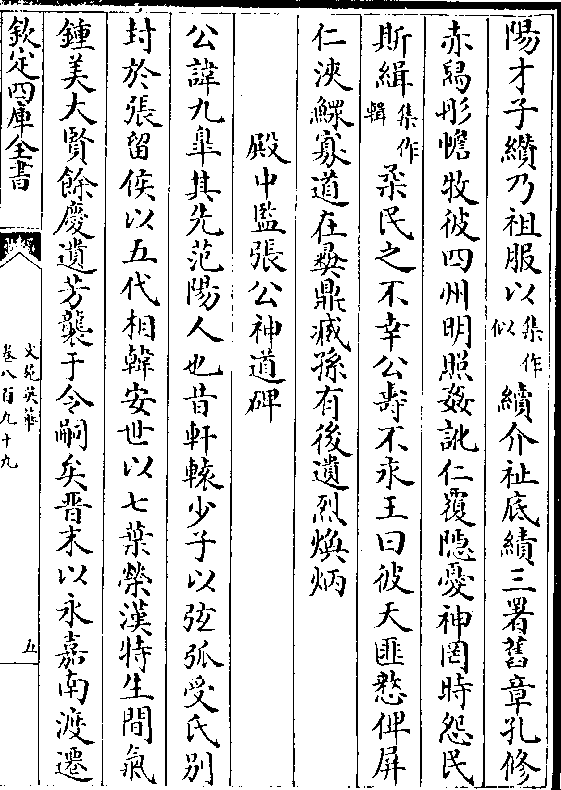 陽才子纘乃祖服以集作似續介祉底績三署舊章孔修
赤舄彤幨牧彼四州明照姦訛仁覆隱憂神罔時怨民
斯緝集作輯柔民之不幸公壽不永王曰彼天匪慭俾屏
仁浹鰥寡道在彞鼎臧孫有後遺烈煥炳
殿中監張公神道碑
公諱九臯其先范陽人也昔軒轅少子以弦弧受氏别
封於張留侯以五代相韓安世以七葉榮漢特生間氣
鍾美大賢餘慶遺芳襲于令嗣矣晋末以永嘉南渡遷
欽定四庫全書
文苑英華
卷八百九十九
五